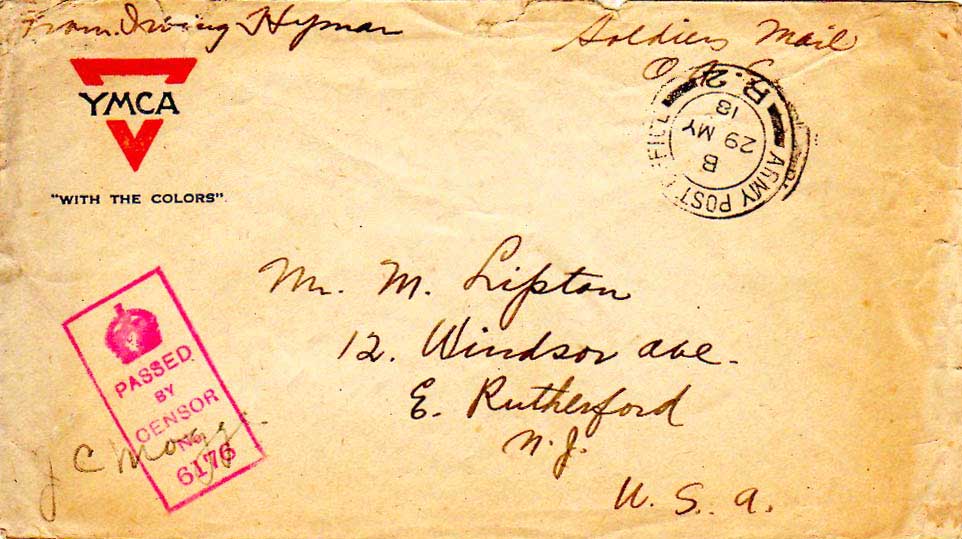 From. Irving Hyman
Soldiers Mail
YMCA
"WITH THE COLORS"
ARMY POST OFFICE
R. 2
B
29 MY
18
Mr. M. Lipton
12. Windsor ave.
E. Rutherford
N. J.
U. S. A.
PASSED
BY
CENSOR
No.
6176
J C